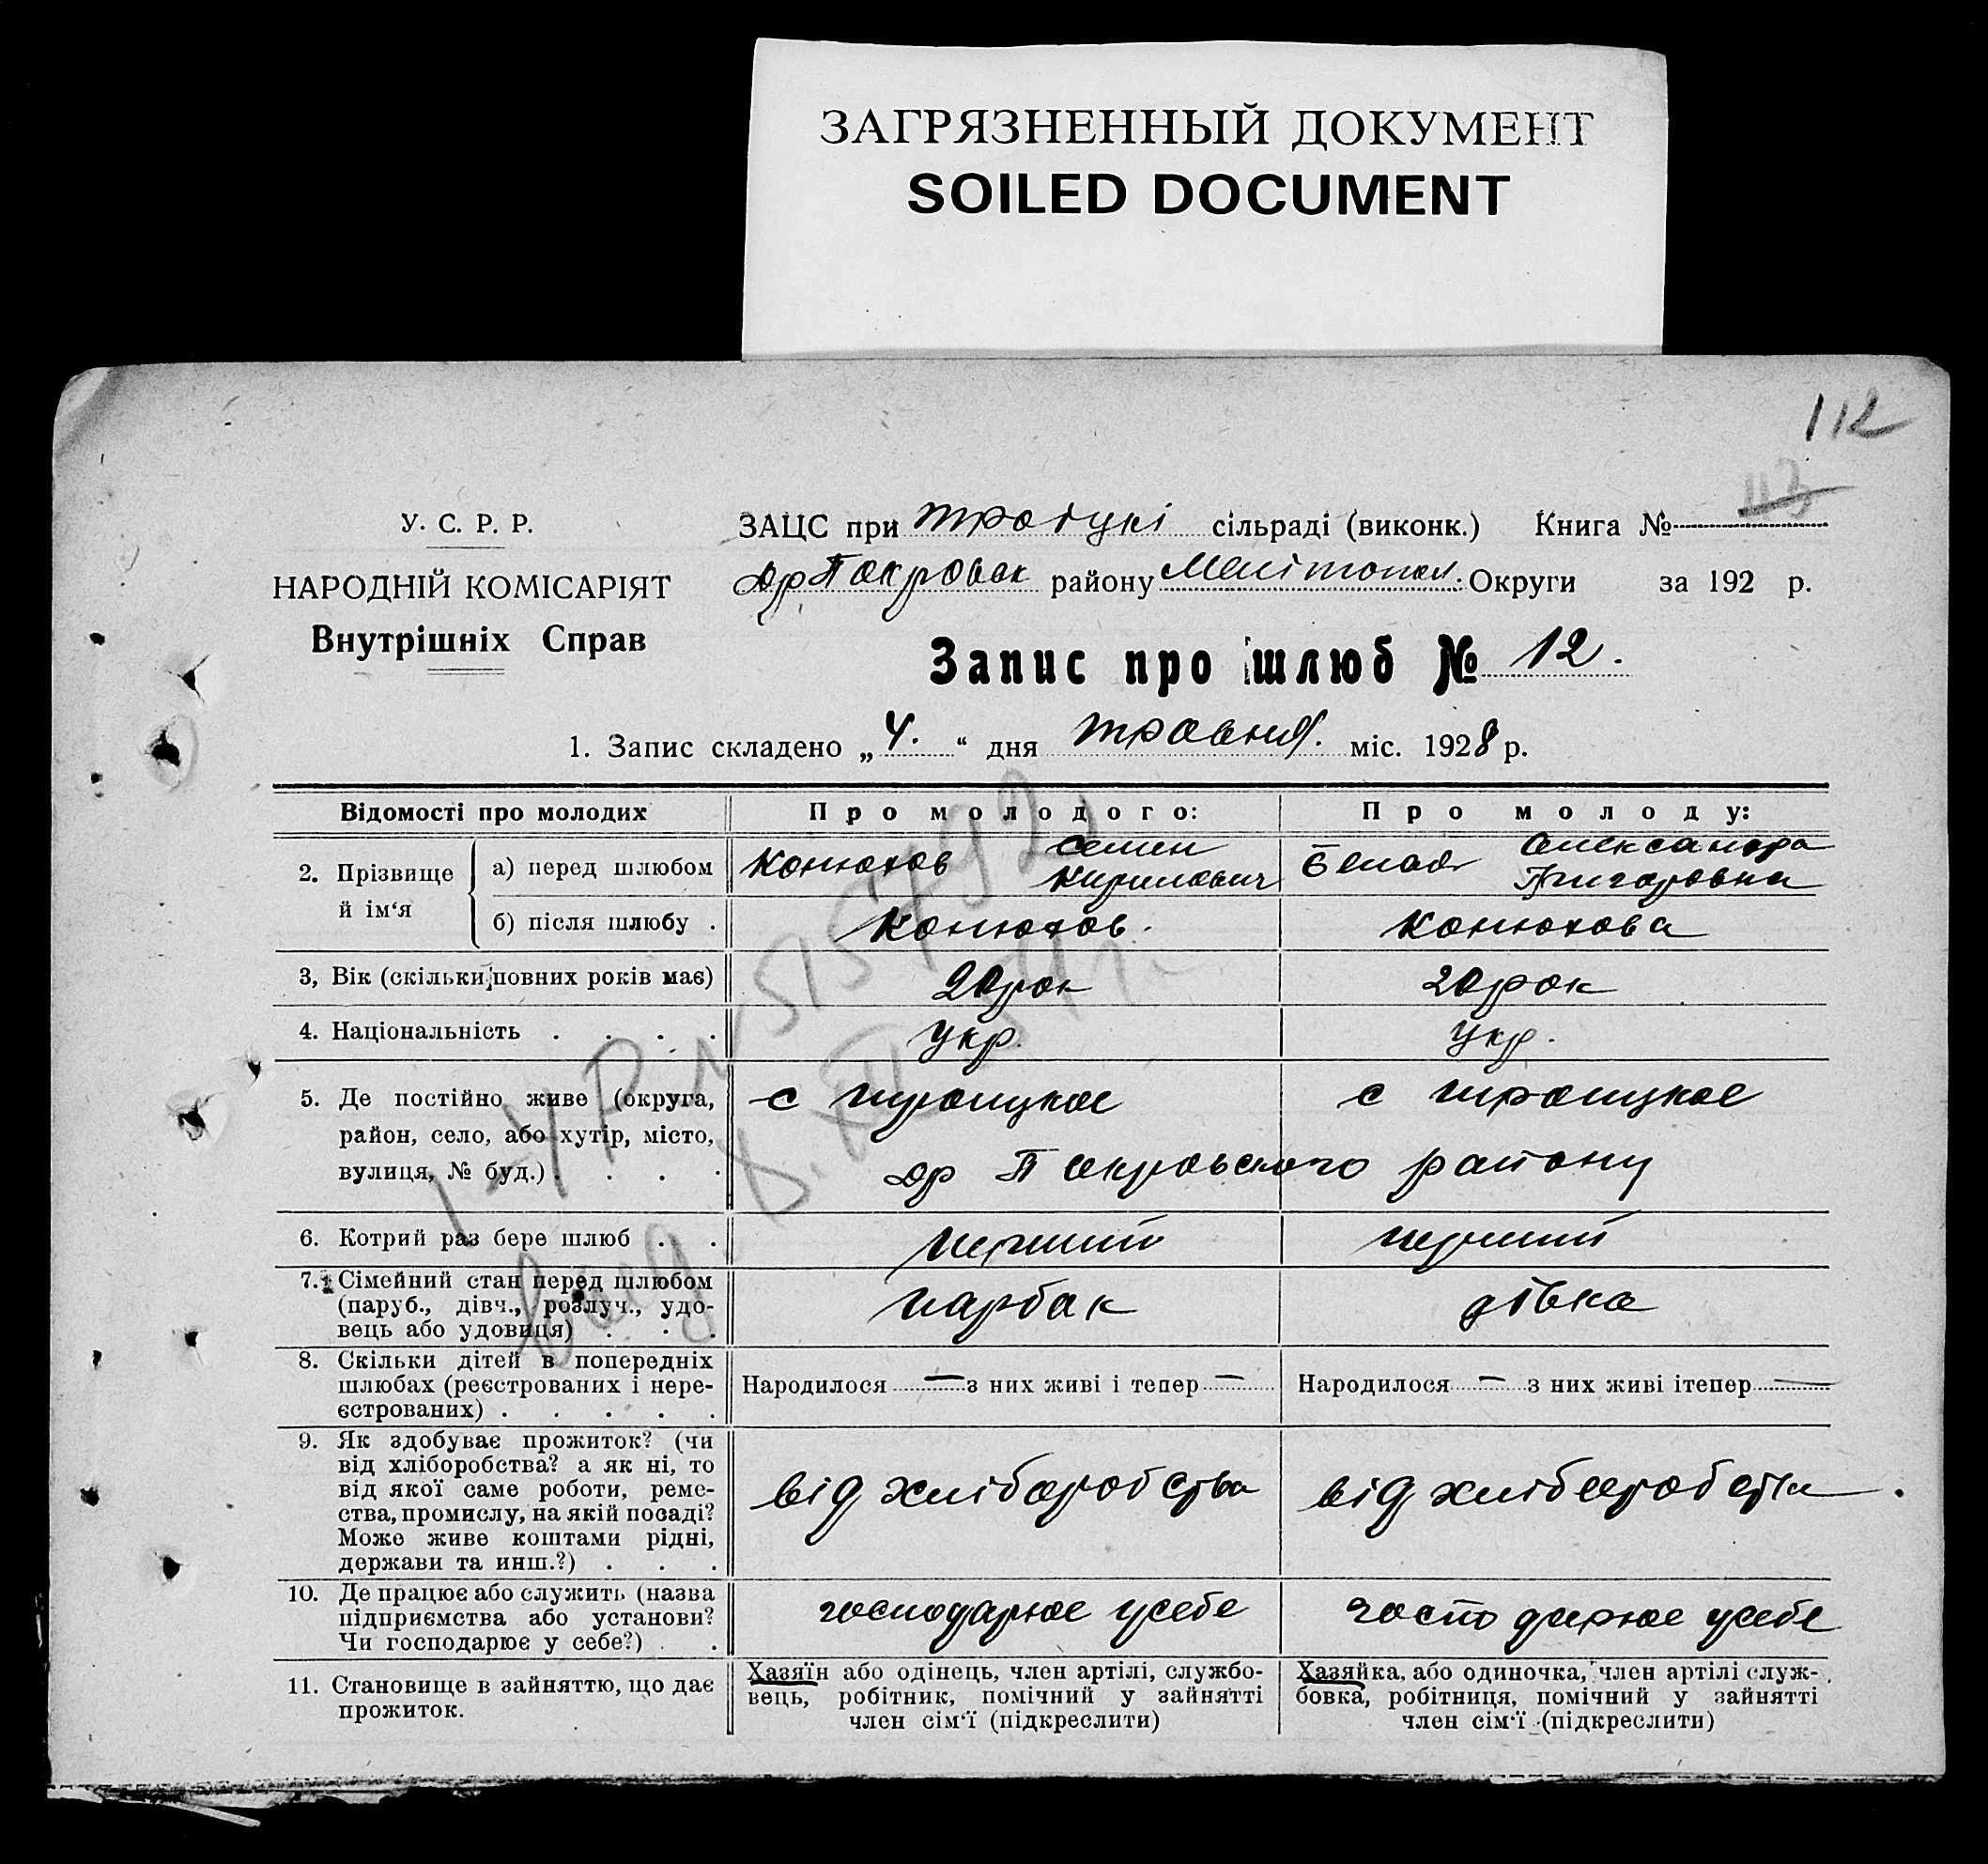 ЗАГРЯЗНЕННЫЙ ДОКУМЕНТ
SOILED DOCUMENT
112
113
У. С. Р. Р.
НАРОДНІЙ КОМІСАРІЯТ
Внутрішніх Справ
ЗАЦС при сільраді (виконк.) Книга №
Покровск району Мелітопол. Округи за 192 р.
Запис про шлюб № 12.
1. Запис складено „4.“ дня травня. міс. 1928 р.
Відомості про молодих
Про молодого:
Про молоду:
2. Прізвище й ім‘я
а) перед шлюбом
Конюхов Семен Кирилович
Олександра Григоровна
б) після шлюбу .
Конюхов.
Конюхова
3, Вік (скільки повних років має)
20 рок
20 рок
4. Національність . . . .
Укр.
Укр.
5. Де постійно живе (округа,
район, село, або хутір, місто,
вулиця, № буд.) . . . .
с троицкое
с троицкое
Покровского району
6. Котрий раз бере шлюб . .
перший
перший
7. Сімейний стан перед шлюбом
(паруб., дівч., розлуч., удо-
вець або удовиця) . . .
парбак
дівка
8. Скільки дітей в попередніх
шлюбах (реєстрованих і нере-
єстрованих) . . . . .
Народилося — з них живі і тепер —
Народилося — з них живі ітепер —
9. Як здобуває прожиток? (чи
від хліборобства? а як ні, то
від якої саме роботи, реме-
ства, промислу, на якій посаді?
Може живе коштами рідні,
держави та инш.?) . . .
від хліборобства
від хліборобства.
10. Де працює або служить (назва
підприємства або установи?
Чи господарює у себе?) . .
господарює усебе
господарює усебе
11. Становище в зайняттю, що дає
прожиток.
Хазяїн або одінець, член артілі, службо-
вець, робітник, помічний у зайнятті
член сім‘ї (підкреслити)
Хазяйка, або одиночка, член артілі служ-
бовка, робітниця, помічний у зайнятті
член сім‘ї (підкреслити)